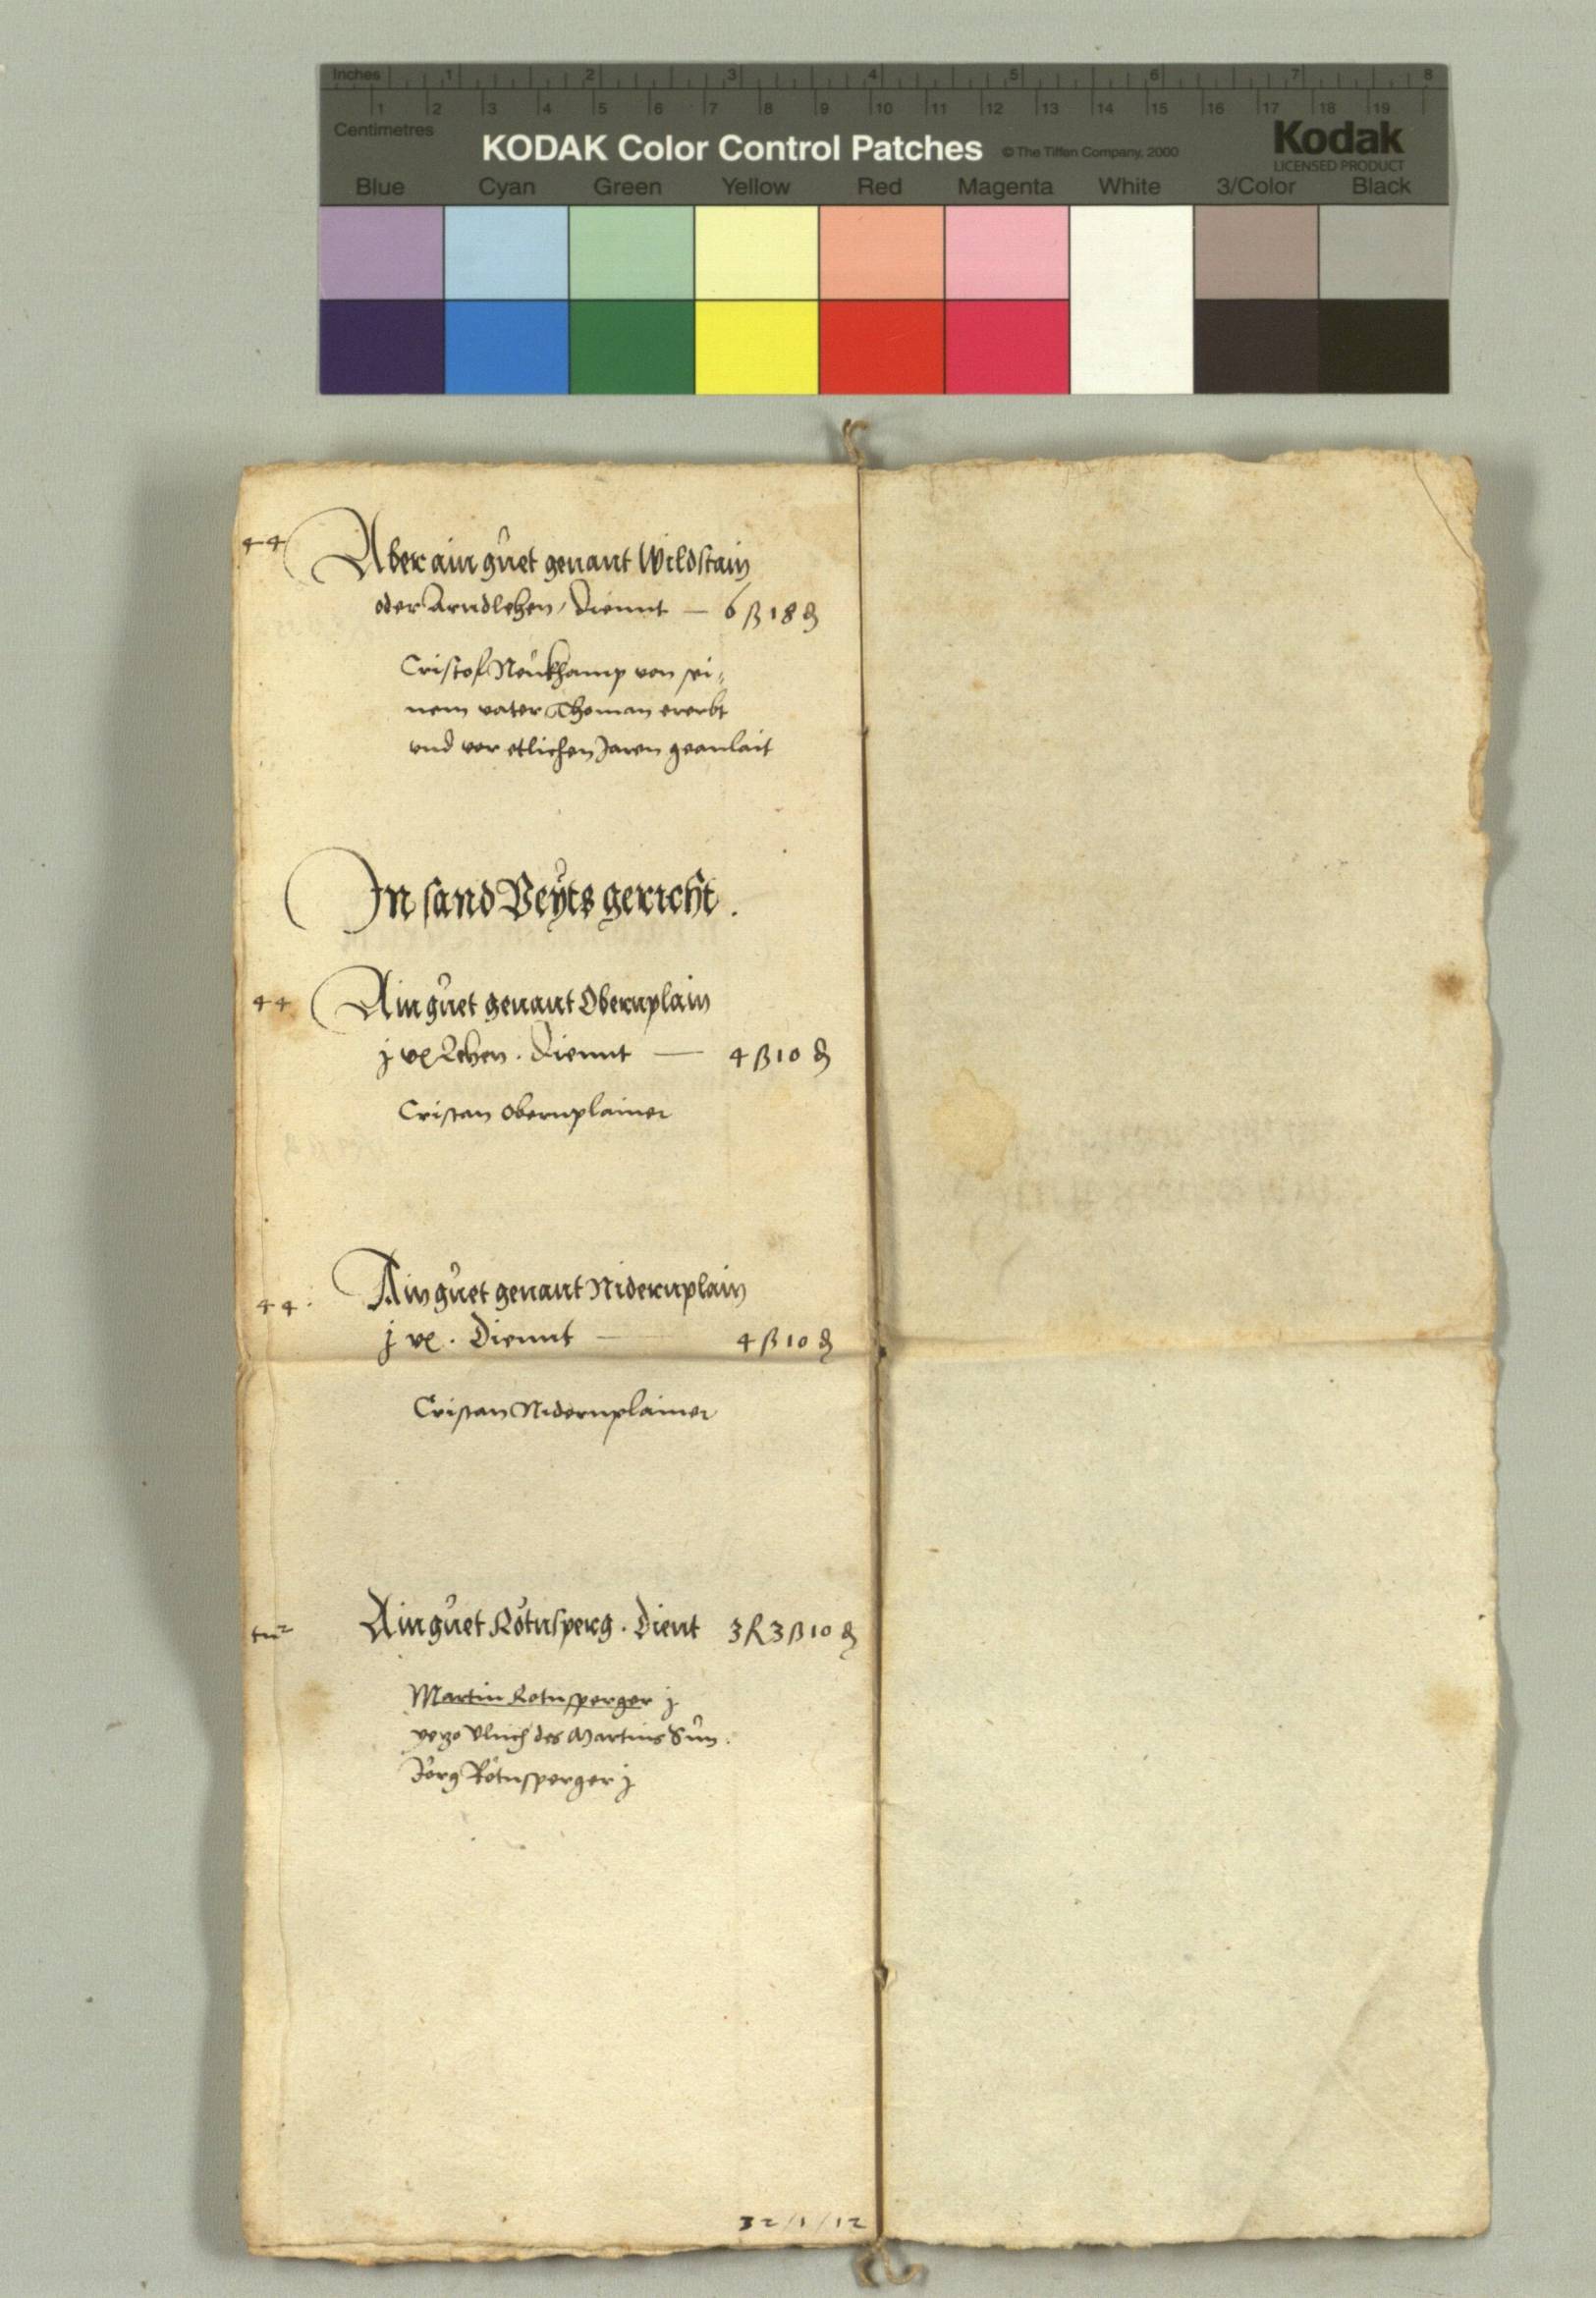 Inches 1 2 3 4 5 6 7 8
1 2 3 4 5 6 7 8 9 10 11 12 13 14 15 16 17 18 19
Centimetres
KODAK Color Control Patches © The Tiffen Company, 2000 Kodak
LICENSED PRODUCT
Blue Cyan Green Yellow Red Magenta White 3/Color Black
44 Aber ain guet genant Wildstain
oder Arndlehen / Diennt — 6 β 18 ₰
Cristof Neukhamp von sei-
nem vater Thoman ererbt
vnd vor etlichen Jaren geanlait
In sand Veyts gericht.
44 Ain guet genant Obernplain
j Lehen. Diennt — 4 β 10 ₰
Cristan Obernplainer
44. Ain guet genant Nidernplain
j Diennt — 4 β 10 ₰
Cristan Nidernplainer
Ain guet Rötnsperg. Dient 3 3 β 10 ₰
Martin Rotnsperger j
yezo Vlrich des Martins Sun.
Jorg Rötnsperger j
32/1/12